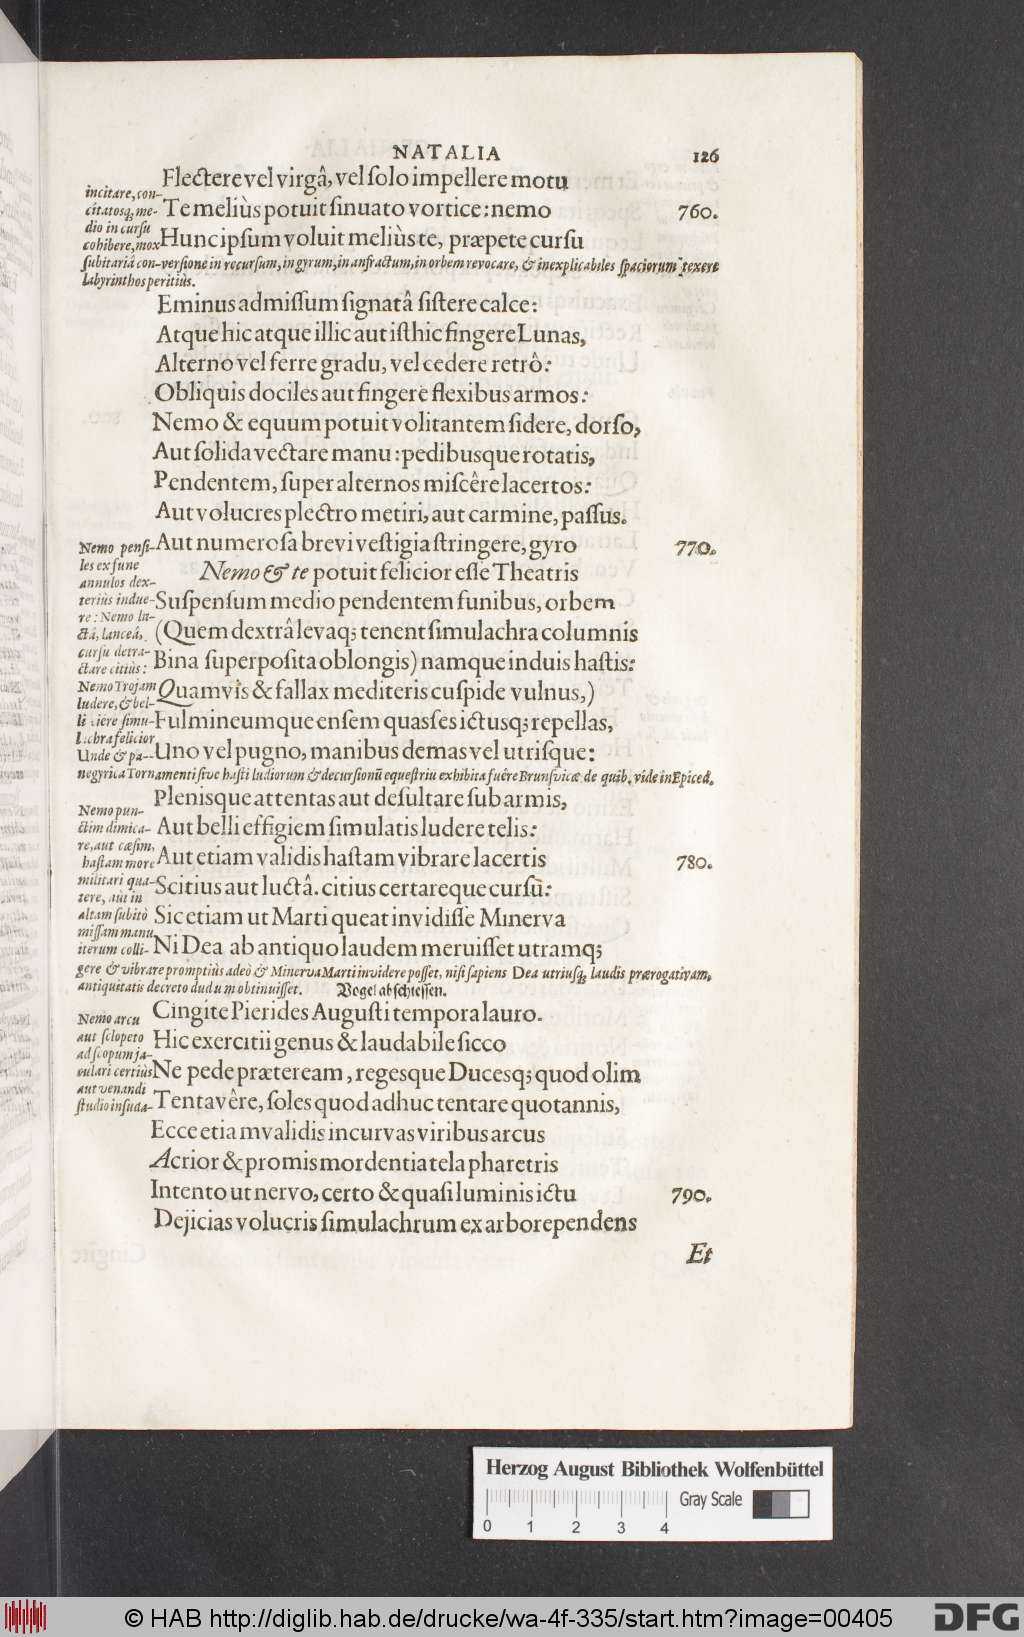 NATALIA 126
Flectere vel virgâ, vel ſolo impellere motu
incitare, con-
citatosq; me-
dio in curſu
cohibere, mox
Te meliùs potuit ſinuato vortice: nemo 760.
Hunc ipſum voluit meliùs te, præpete curſu
ſubitariâ con-verſione in recurſum, in gyrum, in anfractum, in orbem revocare, & inexplicabiles ſpaciorum texere
labyrinthos peritiùs.
Eminus admiſſum ſignatâ ſiſtere calce:
Atque hic atque illic aut iſthic fingere Lunas,
Alterno vel ferre gradu, vel cedere retrô:
Obliquis dociles aut fingere flexibus armos:
Nemo & equum potuit volitantem ſidere, dorſo,
Aut ſolida vectare manu: pedibusque rotatis,
Pendentem, ſuper alternos miſcêre lacertos:
Aut volucres plectro metiri, aut carmine, paſſus.
Aut numeroſa brevi veſtigia ſtringere, gyro 770.
Nemo penſi-
les ex fune
annulos dex-
teriùs indue-
re: Nemo lu-
ctâ, lanceâ,
curſu detra-
ctare citiùs:
Nemo Trojam
ludere, & bel-
li ciere ſimu-
lachra felicior
Unde & pa-
Nemo & te potuit felicior eſſe Theatris
Suſpenſum medio pendentem funibus, orbem
(Quem dextrâ levaq; tenent ſimulachra columnis
Bina ſuperpoſita oblongis) namque induis haſtis:
Quamvis & fallax mediteris cuſpide vulnus,)
Fulmineumque enſem quaſſes ictusq; repellas,
Uno vel pugno, manibus demas vel utriſque:
negyrica Tornamenti ſive haſti ludiorum & decurſionū equeſtriu exhibita fuêre Brunſvicæ de quib. vide in Epiced.
Plenisque attentas aut deſultare ſub armis,
Nemo pun-
ctim dimica-
re, aut cæſim,
haſtam more
militari qua-
tere, aut in
altam ſubitò
miſſam manu
iterum colli-
Aut belli effigiem ſimulatis ludere telis:
Aut etiam validis haſtam vibrare lacertis 780.
Scitius aut luctâ. citius certareque curſū:
Sic etiam ut Marti queat invidiſſe Minerva
Ni Dea ab antiquo laudem meruiſſet utramq;
gere & vibrare promptiùs adeò & Minerva Marti invidere poſſet, niſi ſapiens Dea utriuſq; laudis prærogativam,
antiquitatis decreto dudum obtinuiſſet. Vogel abſchieſſen.
Cingite Pierides Auguſti tempora lauro.
Nemo arcu
aut ſclopeto
ad ſcopum ja-
culari certiùs
aut venandi
ſtudio inſuda-
Hic exercitii genus & laudabile ſicco
Ne pede præteream, regesque Ducesq; quod olim
Tentavêre, ſoles quod adhuc tentare quotannis,
Ecce etiam validis incurvas viribus arcus
Acrior & promis mordentia tela pharetris
Intento ut nervo, certo & quaſi luminis ictu 790.
Dejicias volucris ſimulachrum ex arbore pendens
Et
Herzog August Bibliothek Wolfenbüttel
Gray Scale
0 1 2 3 4
© HAB http://diglib.hab.de/drucke/wa-4f-335/start.htm?image=00405
DFG